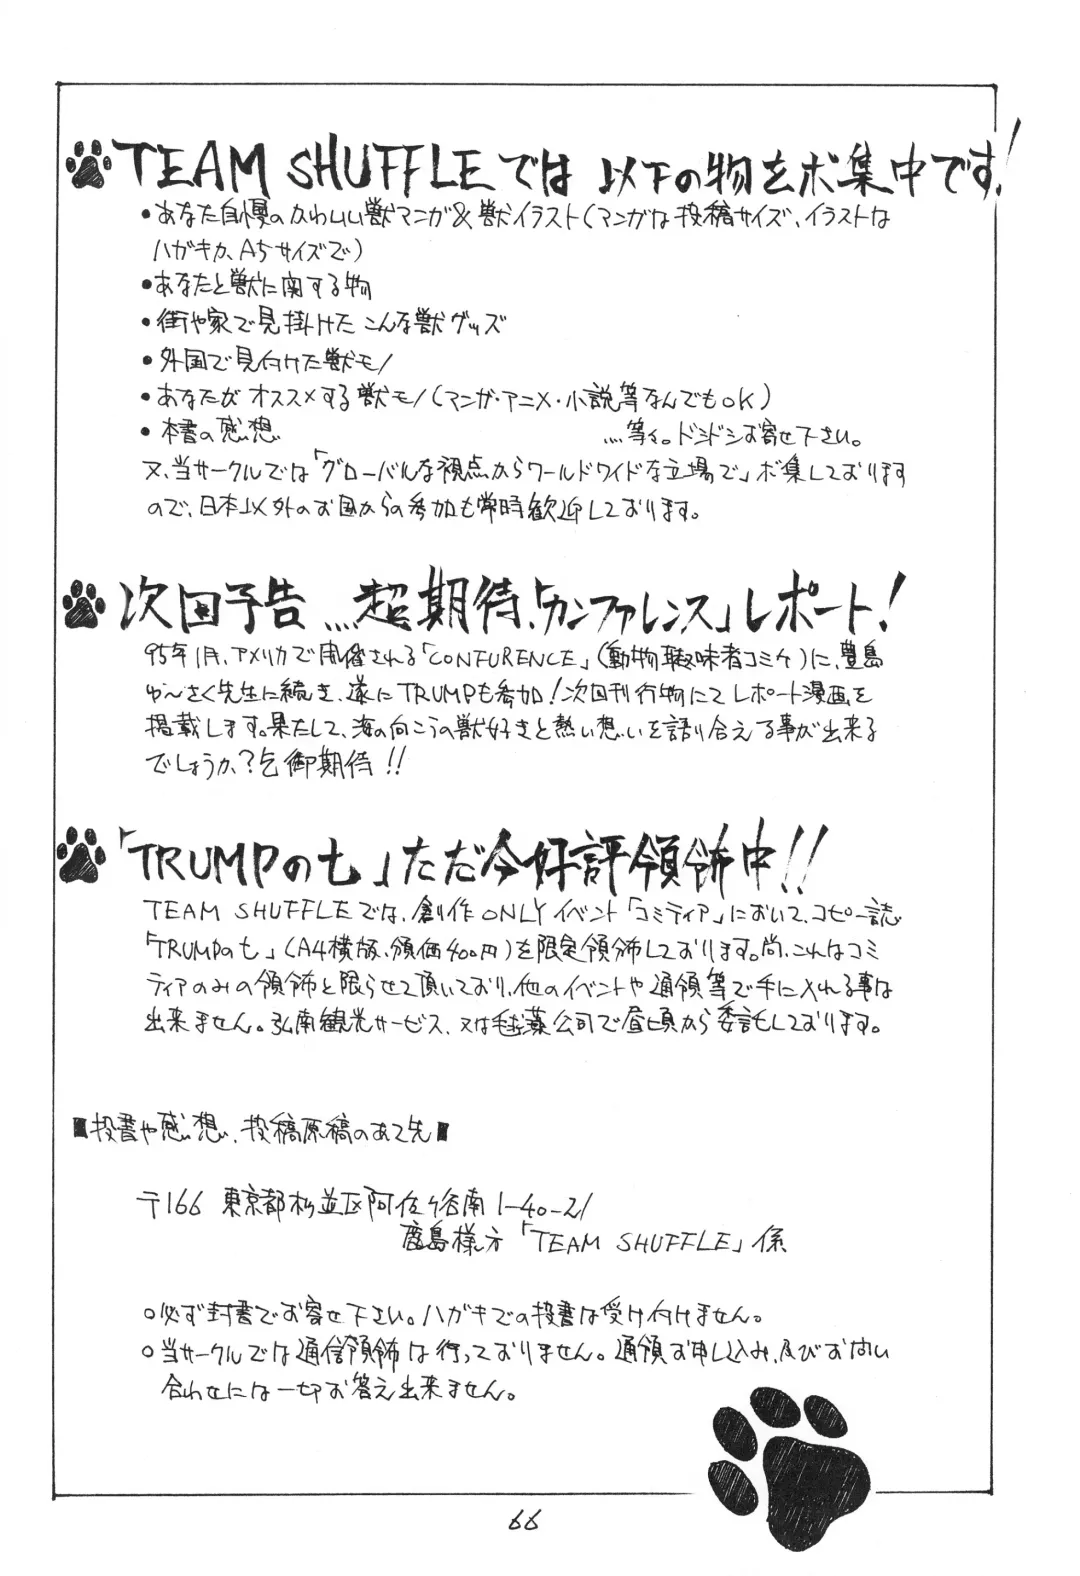 TEAM SHUFFLEでは 以下の物をボ集中です!
・あなた自慢のかわいい獣マンガ&獣イラスト(マンガは投稿サイズ、イラストは
ハガキか、A5サイズで)
・あなたと獣に関する物
・街や家で見掛けた こんな獣グッズ
・外国で見付けた獣モノ
・あなたが オススメする獣モノ(マンガ・アニメ・小説等なんでもOK)
・本書の感想 …等々。ドシドシお寄せ下さい。
又、当サークルでは「グローバルな視点からワールドワイドな立場で」ボ集しております
ので、日本以外のお国からの参加も常時歓迎しております。
次回予告…超期待、「カンファレンス」レポート!
95年1月、アメリカで開催される「CONFURENCE」(動物趣味者コミケ)に、豊島
ゆーさく先生に続き、遂に TRUMPも参加!次回刊行物にて レポート漫画を
掲載します。果たして、海の向こうの獣好きと熱い想いを語り合える事が出来る
でしょうか?乞御期待!!
「TRUMPの七」ただ今好評領布中!!
TEAM SHUFFLEでは、創作ONLYイベント「コミティア」において、コピー誌
「TRUMPの七」(A4横版、頒価400円)を限定領布しております。尚、これはコミ
ティアのみの領布と限らせて頂いており、他のイベントや通領等で手に入れる事は
出来ません。弘南観光サービス、又は毛蓬薬公司で昼頃から委託しております。
■投書や感想、投稿原稿のあて先■
〒166 東京都杉並区阿佐ヶ谷南1-40-21
鹿島様方「TEAM SHUFFLE」係
○必ず封書でお寄せ下さい。ハガキでの投書は受け付けません。
○当サークルでは通信領布は行っておりません。通領お申し込み、及びお問い
合わせには一切お答え出来ません。
66